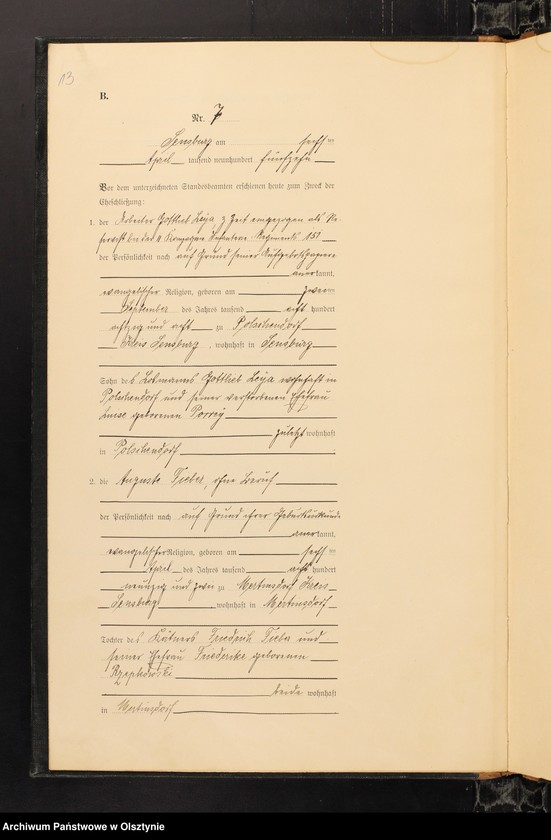 13
B.
Nr. 7
Sensburg am sechsten
April tausend neunhundert fünfzehn
Vor dem unterzeichneten Standesbeamten erschienen heute zum Zweck der
Eheschließung:
1. der Arbeiter Gottlieb Leya z Zeit eingezogen als Re-
servist bei der Kompagnie Infanterie Regiments 151
der Persönlichkeit nach auf Grund seiner Aufgebotspapiere
anerkannt,
evangelischer Religion, geboren am zweiten
September des Jahres tausend acht hundert
achtzig und acht zu Polschendorf
Kreis Sensburg, wohnhaft in Sensburg
Sohn des Losmanns Gottlieb Leya wohnhaft in
Polschendorf und seiner verstorbenen Ehefrau
Luise geborenen
zuletzt wohnhaft
in Polschendorf
2. die Auguste Sieber, ohne Beruf
der Persönlichkeit nach auf Grund ihrer Geburtsurkunde
anerkannt,
evangelischer Religion, geboren am sechsten
April des Jahres tausend acht hundert
neunzig und zwei zu Mertinsdorf Kreis
Sensburg wohnhaft in Mertinsdorf
Tochter des Kätners Friedrich Sieber und
seiner Ehefrau Friederike geborenen
Rzepkowski
beide wohnhaft
in Mertinsdorf
Archiwum Państwowe w Olsztynie